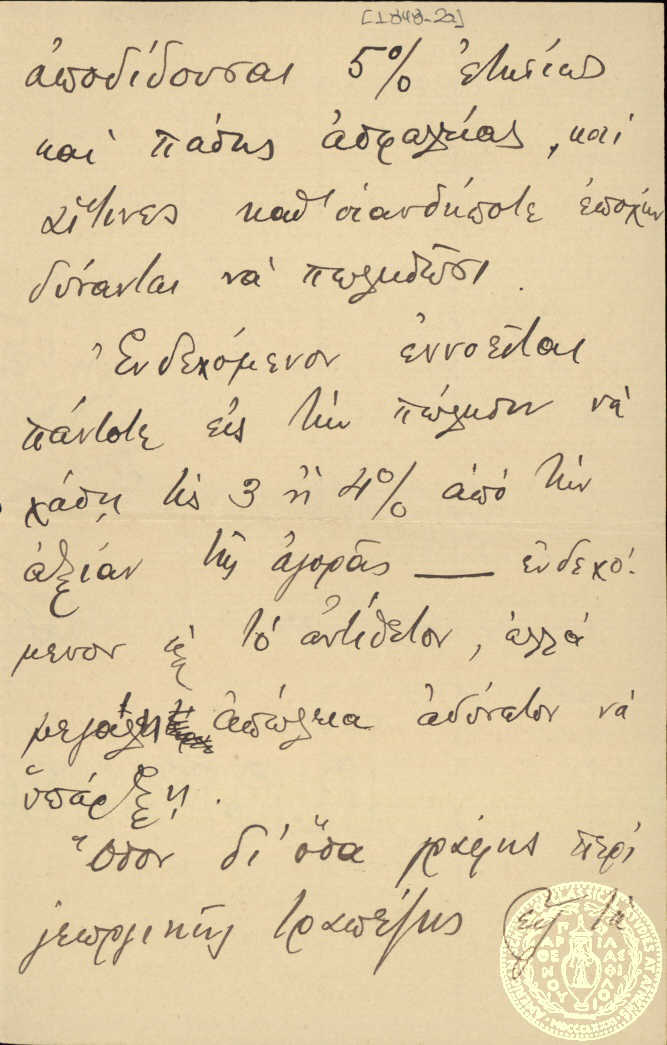 [1848-2a]
ἀποδίδουσαι 5% ἐτησίως
καὶ πάσης ἀσφαλείας, καὶ
αἵτινες καθ' οἱανδήποτε ἐποχὴν
δύνανται νὰ πωληθῶσι.
Ἐνδεχόμενον ἐννοεῖται
πάντοτε εἰς τὴν πώλησιν νὰ
χάσῃ τις 3 ἢ 4% ἀπὸ τὴν
ἀξίαν τῆς ἀγορᾶς — ἐνδεχό-
μενον κ̀ τὸ ἀντίθετον, ἀλλὰ
μεγάλη ἀπώλεια ἀδύνατον νὰ
ὑπάρξῃ.
Ὅσον δι' ὅσα γράφεις περὶ
γεωργικῆς τραπέζης τὰ